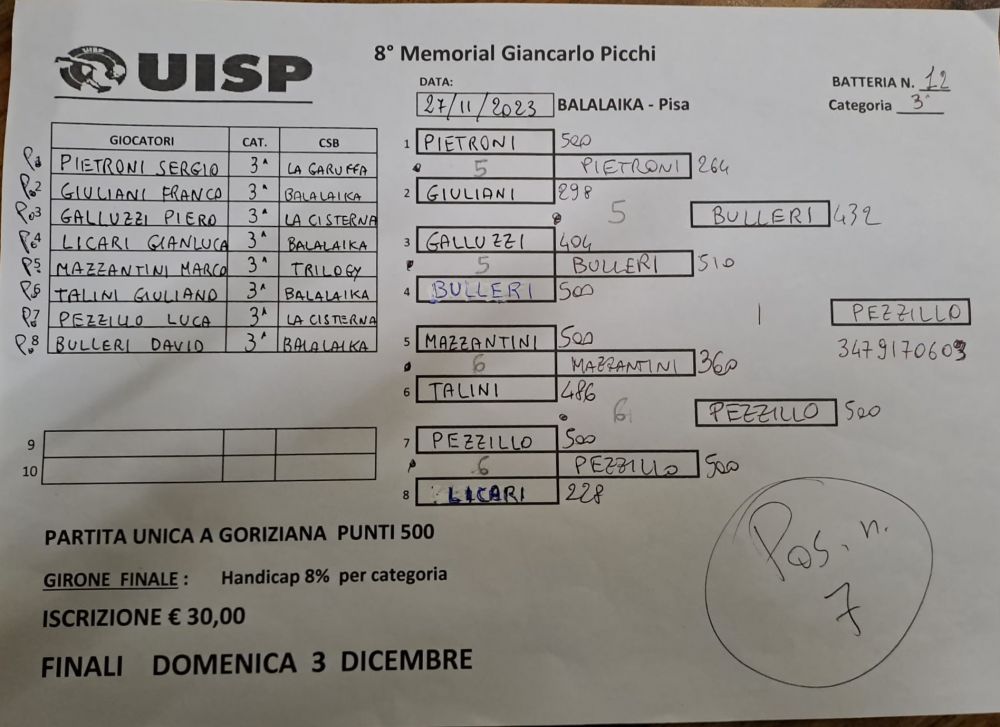 UISP
8° Memorial Giancarlo Picchi
DATA:
27/11/2023 BALALAIKA - Pisa
BATTERIA N. 12
Categoria 3^
GIOCATORI CAT. CSB
P.1 PIETRONI SERGIO 3^ LA GARUFFA
P.2 GIULIANI FRANCO 3^ BALALAIKA
P.3 GALLUZZI PIERO 3^ LA CISTERNA
P.4 LICARI GIANLUCA 3^ BALALAIKA
P.5 MAZZANTINI MARCO 3^ TRILOGY
P.6 TALINI GIULIANO 3^ BALALAIKA
P.7 PEZZILLO LUCA 3^ LA CISTERNA
P.8 BULLERI DAVID 3^ BALALAIKA
9
10
1 PIETRONI 500
5 PIETRONI 264
2 GIULIANI 298
5 BULLERI 432
3 GALLUZZI 404
5 BULLERI 510
4 BULLERI 500
1 PEZZILLO
3479170603
5 MAZZANTINI 500
6 MAZZANTINI 360
6 TALINI 486
6 PEZZILLO 500
7 PEZZILLO 500
6 PEZZILLO 500
8 LICARI 228
PARTITA UNICA A GORIZIANA PUNTI 500
GIRONE FINALE : Handicap 8% per categoria
ISCRIZIONE € 30,00
FINALI DOMENICA 3 DICEMBRE
Pos. n.
7